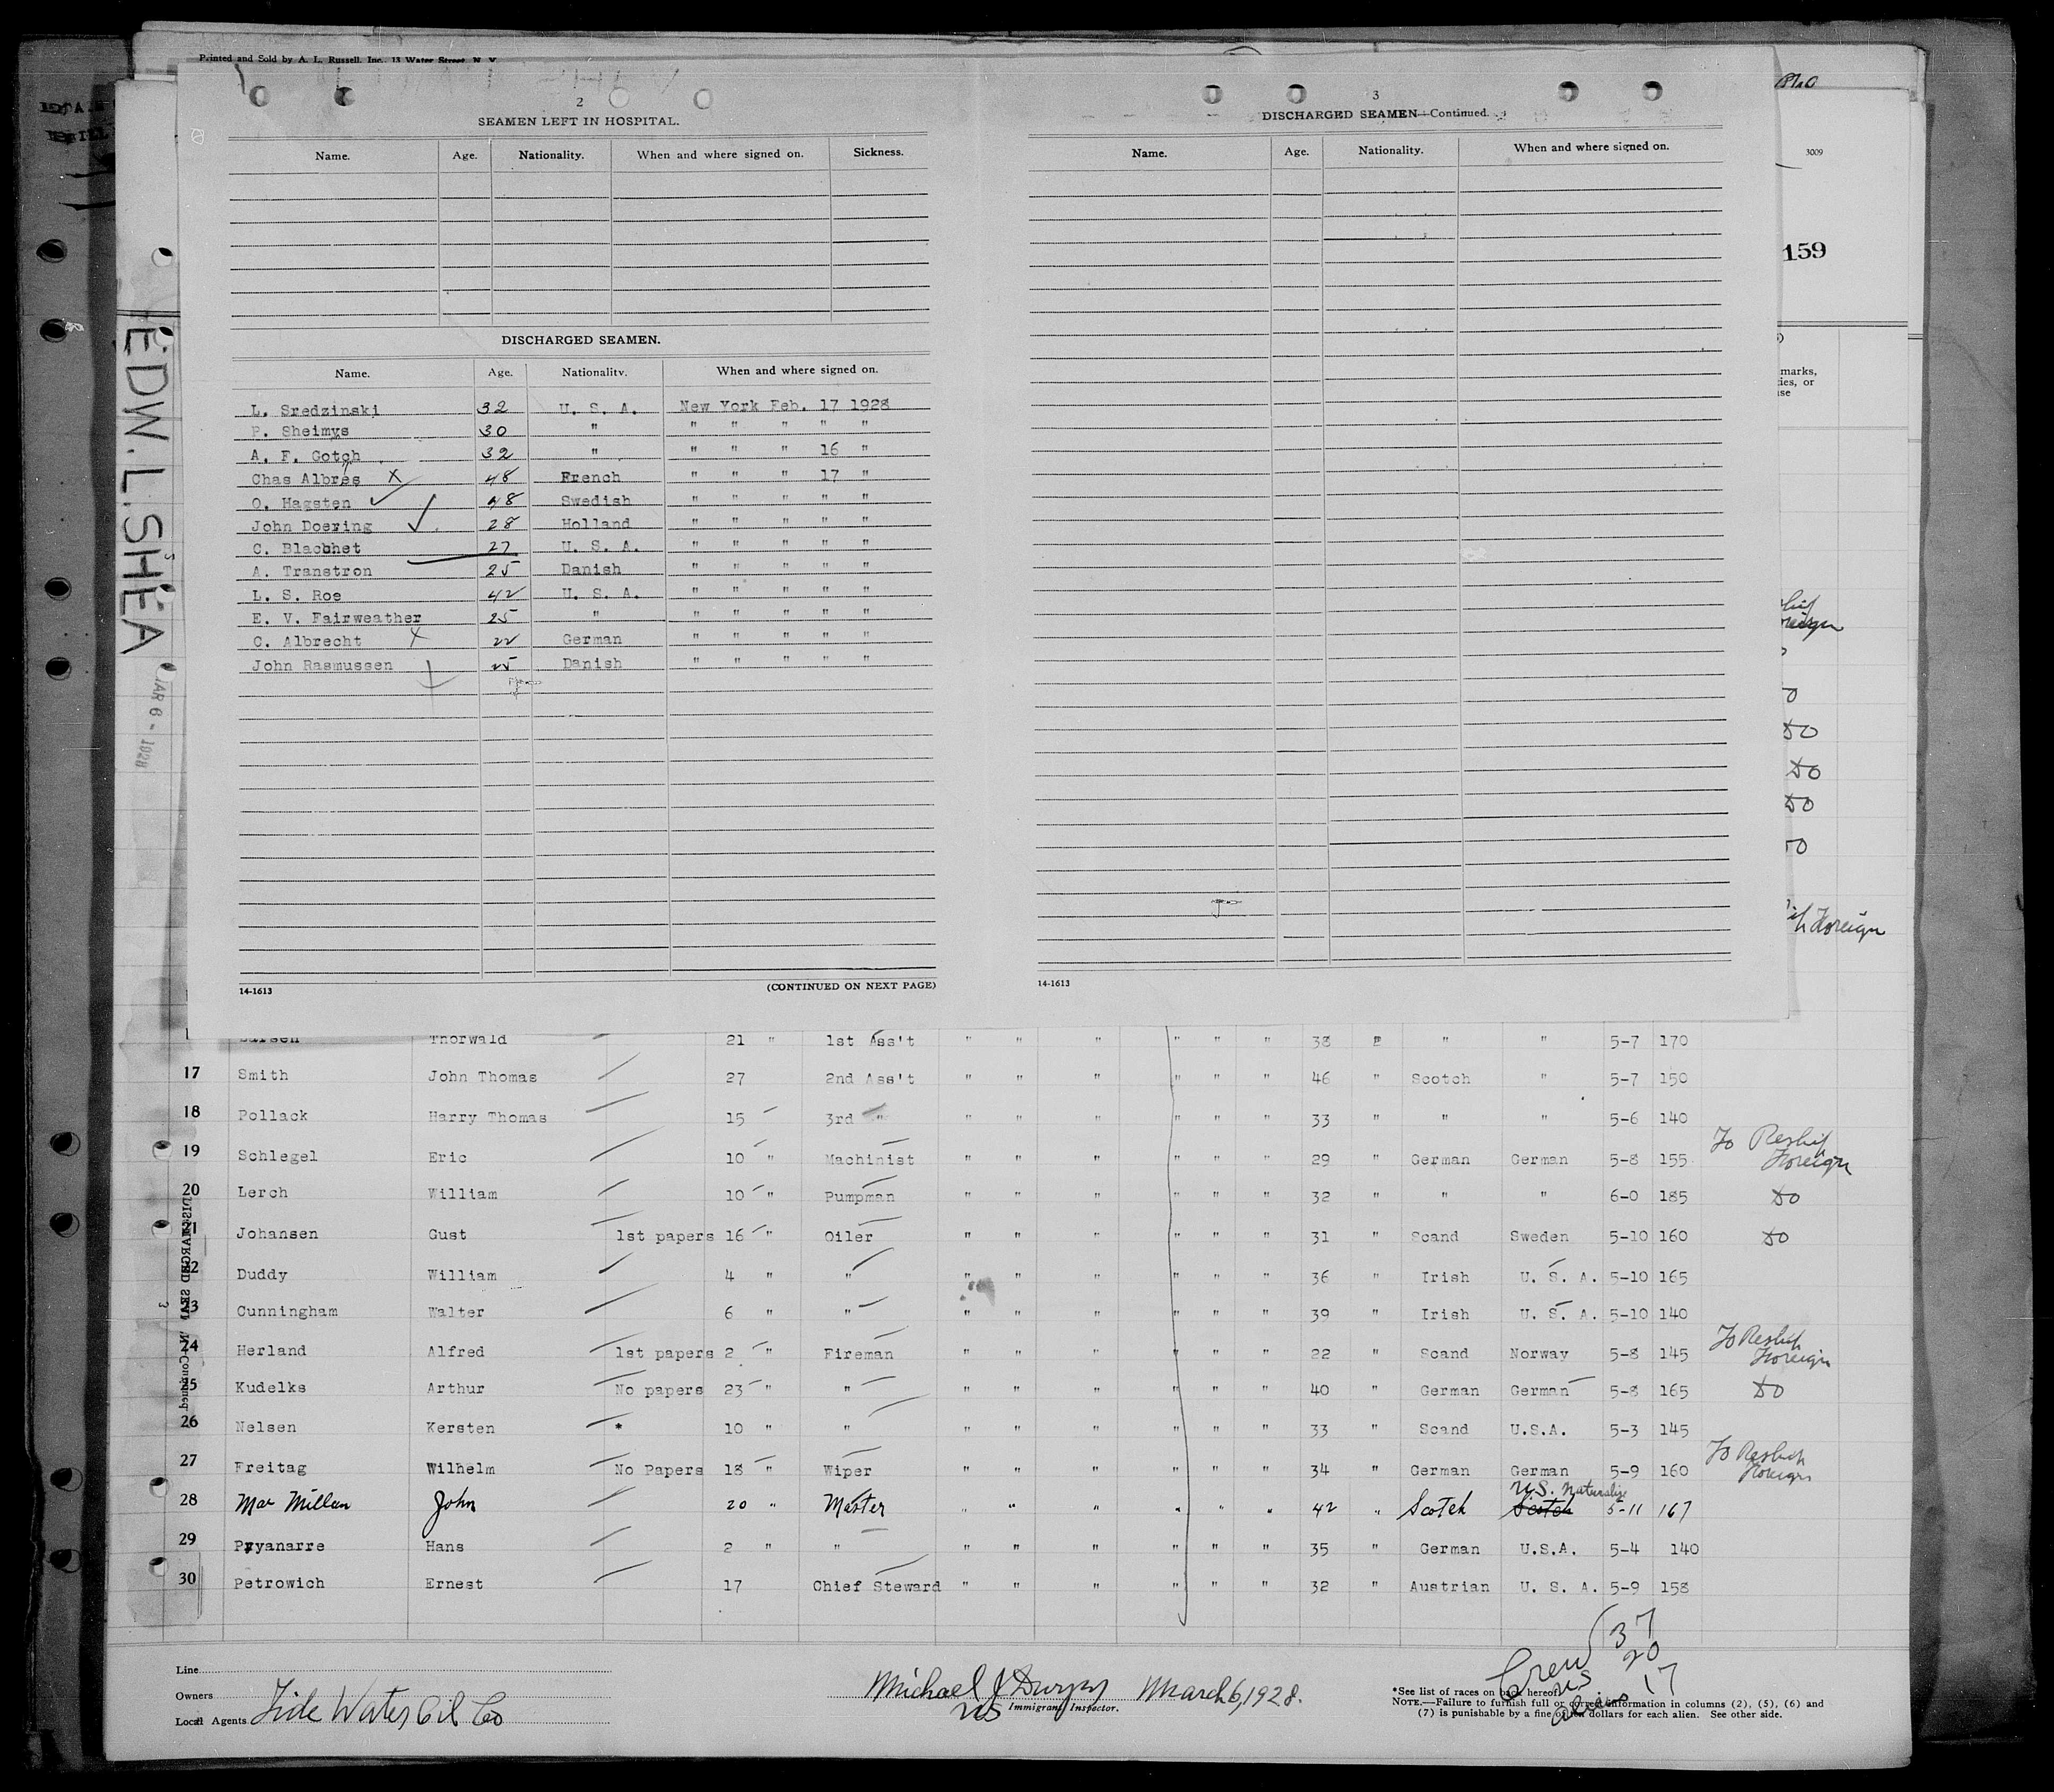 Printed and Sold by A. L. Russell, Inc. 13 Water Street, N. Y.
2
SEAMEN LEFT IN HOSPITAL.
Name. Age. Nationality. When and where signed on. Sickness.
DISCHARGED SEAMEN.
Name. Age. Nationality. When and where signed on.
L. Sredzinski 32 U. S. A. New York Feb. 17 1928
P. Sheimys 30 " " " " " "
A. F. Gotch 32 " " " " 16 "
Chas Albres X 48 French " " " 17 "
O. Hagsten ✓ 48 Swedish " " " " "
John Doering ✓ 28 Holland " " " " "
C. Blachet 27 U. S. A. " " " " "
A. Transtron 25 Danish " " " " "
L. S. Roe 42 U. S. A. " " " " "
E. V. Fairweather 25 " " " " " "
C. Albrecht X 22 German " " " " "
John Rasmussen 25 Danish " " " " "
14-1613 (CONTINUED ON NEXT PAGE)
3
DISCHARGED SEAMEN—Continued.
Name. Age. Nationality. When and where signed on.
14-1613
3009
159
marks,
ties, or
use
Foreign
EDW. L. SHEA
MAR 6 - 1928
Larsen Thorwald 21 " 1st Ass't " " " " " " 38 " " " 5-7 170
17 Smith John Thomas 27 2nd Ass't " " " " " " 46 " Scotch " 5-7 150
18 Pollack Harry Thomas 15 3rd " " " " " " " 33 " " " 5-6 140
19 Schlegel Eric 10 " Machinist " " " " " " 29 " German German 5-8 155 To Reship Foreign
20 Lerch William 10 " Pumpman " " " " " " 32 " " " 6-0 185 do
21 Johansen Gust 1st papers 16 " Oiler " " " " " " 31 " Scand Sweden 5-10 160 do
22 Duddy William 4 " " " " " " " " 36 " Irish U. S. A. 5-10 165
23 Cunningham Walter 6 " " " " " " " " 39 " Irish U. S. A. 5-10 140
24 Herland Alfred 1st papers 2 " Fireman " " " " " " 22 " Scand Norway 5-8 145 To Reship Foreign
25 Kudelks Arthur No papers 23 " " " " " " " " 40 " German German 5-8 165 do
26 Nelsen Kersten * 10 " " " " " " " " 33 " Scand U.S.A. 5-3 145
27 Freitag Wilhelm No Papers 18 " Wiper " " " " " " 34 " German German 5-9 160 To Reship Foreign
28 Mac Millan John 20 " Master " " " " " " 42 " Scotch Scotch U.S. Naturalize 5-11 167
29 Pryanarre Hans 2 " " " " " " " " 35 " German U.S.A. 5-4 140
30 Petrowich Ernest 17 Chief Steward " " " " " " 32 " Austrian U. S. A. 5-9 158
DISCHARGED SEAMEN—Continued.
3
Crew 37
US 20
aliens 17
Line
Owners
Local Agents Tide Water Oil Co
Michael J Dwyer March 6, 1928.
US Immigrant Inspector.
*See list of races on back hereof.
NOTE.—Failure to furnish full or correct information in columns (2), (5), (6) and
(7) is punishable by a fine of ten dollars for each alien. See other side.